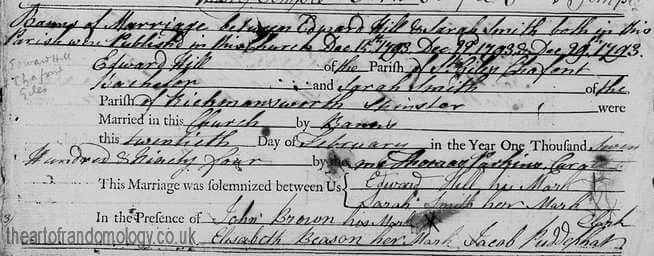 Banns of Marriage between Edward Hill & Sarah Smith both in this
Parish were Published in this Church Dec 15th 1793 Dec 22d 1793 & Dec 29th 1793.
Edward Hill of the Parish of St Giles Chafont
Bachelor and Sarah Smith of the
Parish of Richmansworth Spinster were
Married in this Church by Banns
this twentieth Day of February in the Year One Thousand Seven
Hundred & Ninety four by me Thomas Curate
This Marriage was solemnized between Us Edward Hill his Mark
Sarah Smith her Mark
In the Presence of John Brown his Mark X Clark
Elisabeth Beason her Mark Jacob Puddephat
Edward Hill
Chafont
Giles
3
theartofrandomology.co.uk